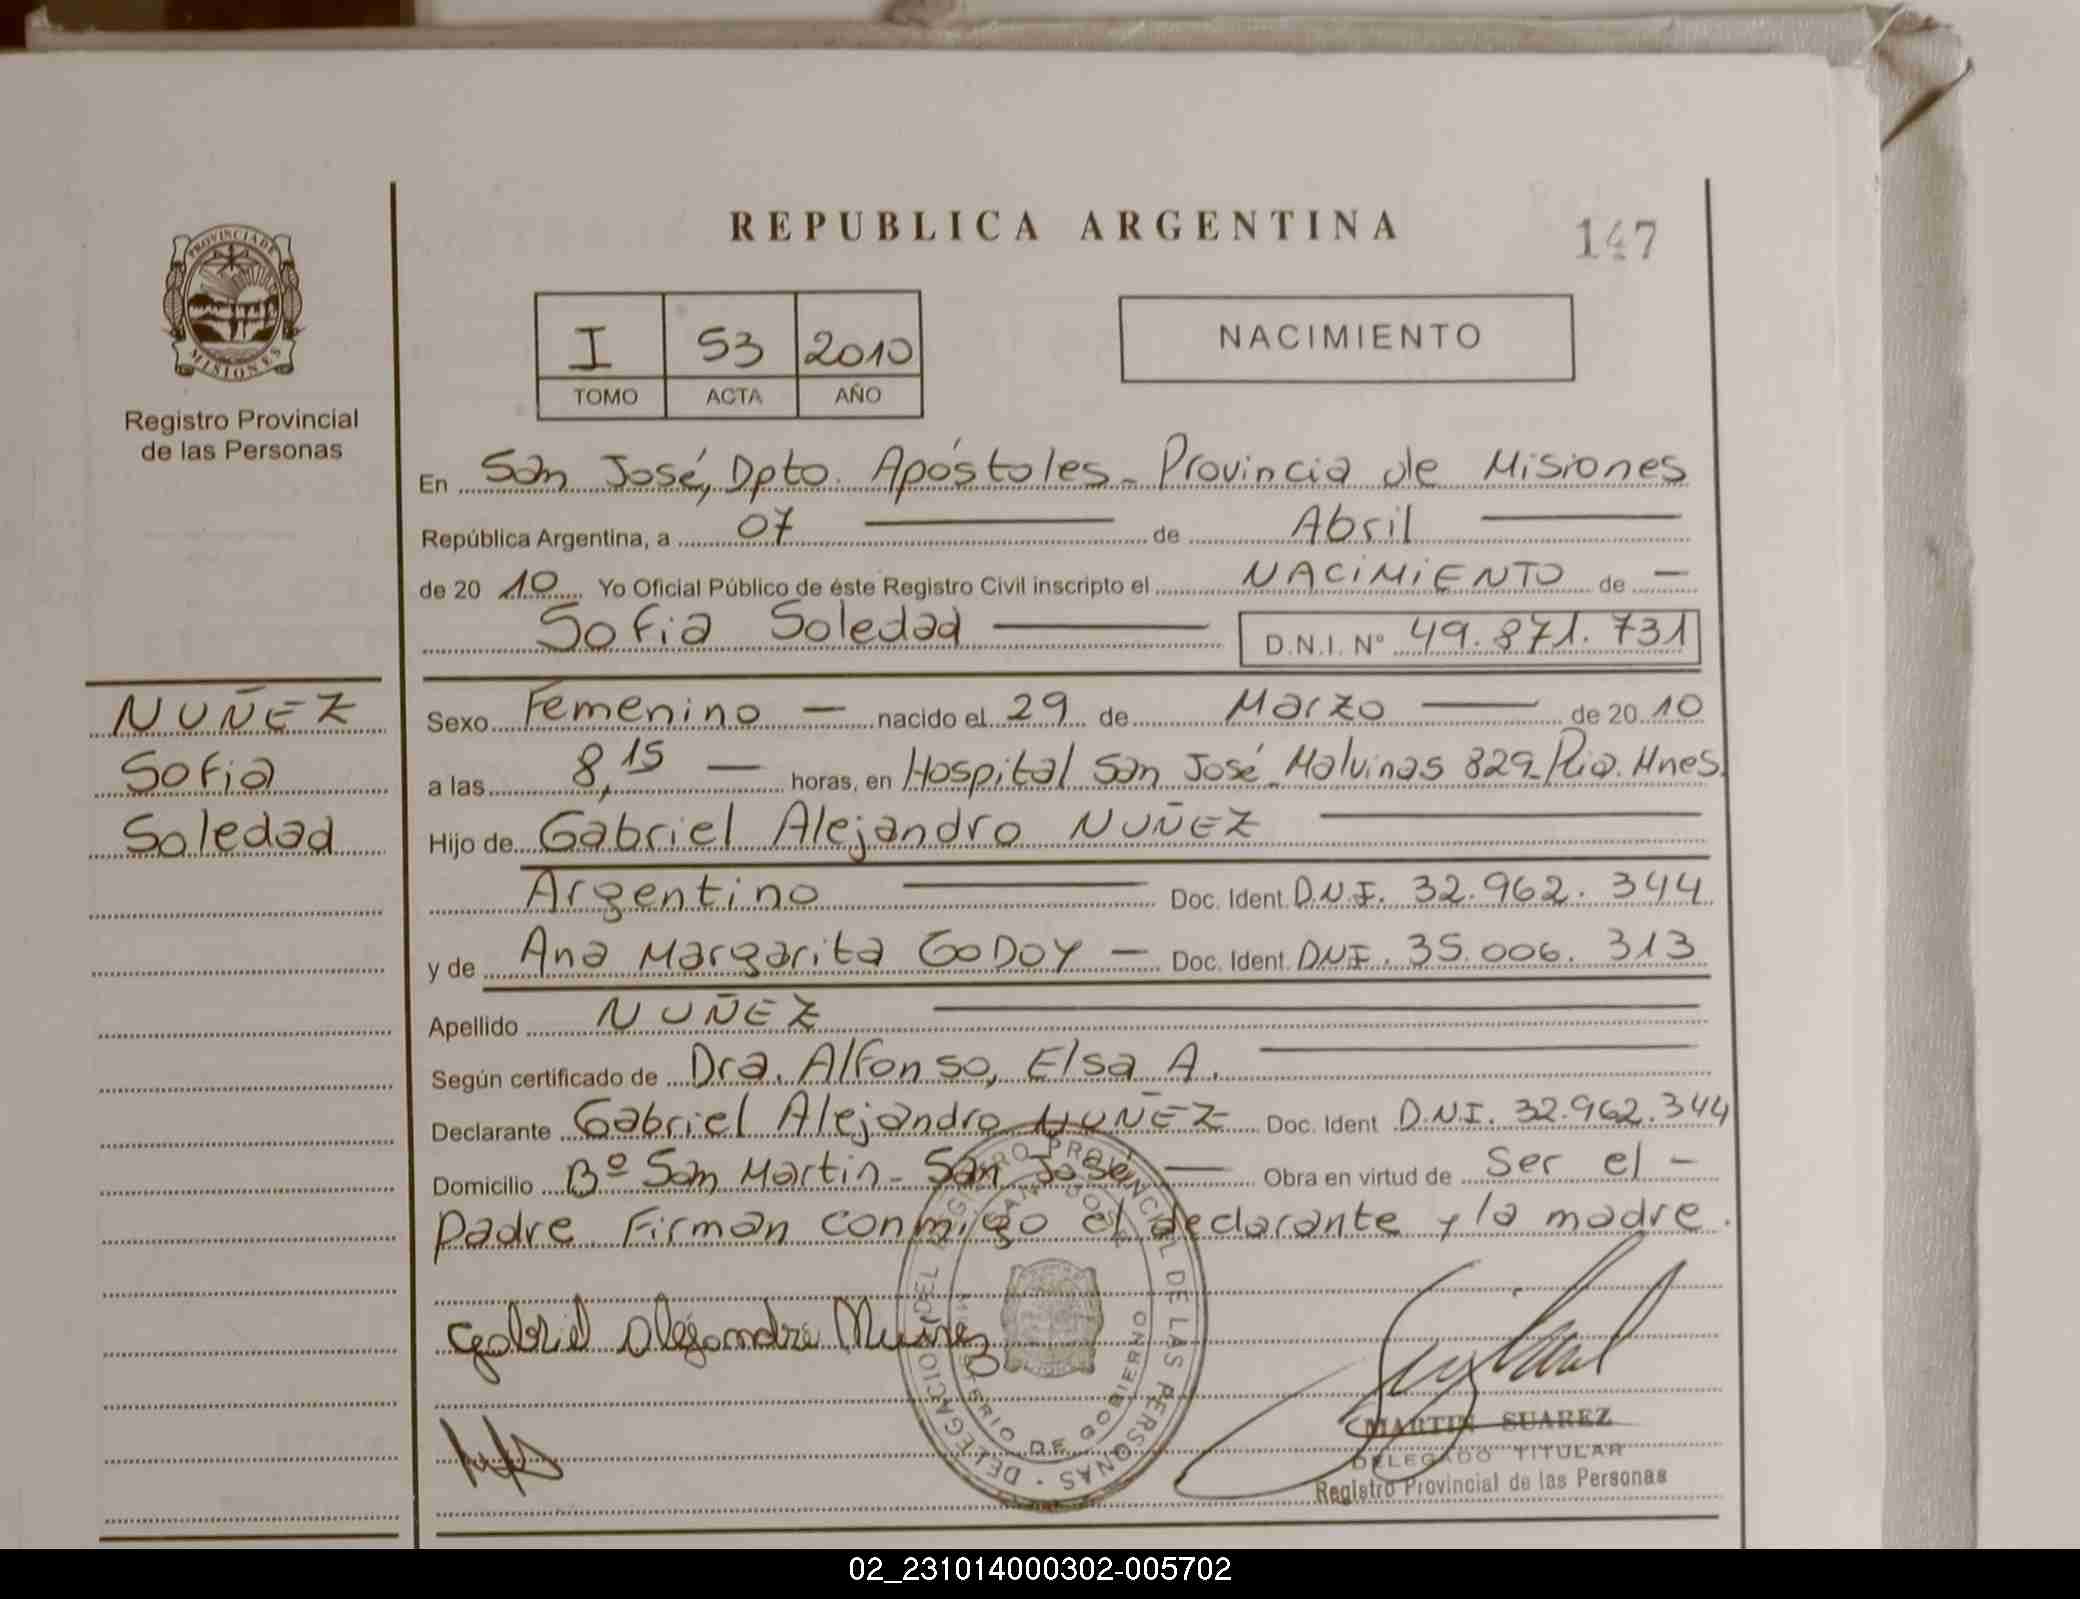 REPUBLICA ARGENTINA
147
PROVINCIA DE
MISIONES
Registro Provincial
de las Personas
I 53 2010
TOMO ACTA AÑO
NACIMIENTO
En San José, Dpto. Apóstoles - Provincia de Misiones
República Argentina, a 07 de Abril
de 20 10 Yo Oficial Público de éste Registro Civil inscripto el NACIMIENTO de
Sofia Soledad D.N.I. Nº 49.871.731
NUÑEZ
Sofia
Soledad
Sexo Femenino nacido el 29 de Marzo de 20 10
a las 8,15 horas, en Hospital San José - Malvinas 829 - Pia. Mnes.
Hijo de Gabriel Alejandro NUÑEZ
Argentino Doc. Ident. D.N.I. 32.962.344
y de Ana Margarita GODOY Doc. Ident. DNI. 35.006.313
Apellido NUÑEZ
Según certificado de Dra. Alfonso, Elsa A.
Declarante Gabriel Alejandro NUÑEZ Doc. Ident D.N.I. 32.962.344
Domicilio Bº San Martin - San José Obra en virtud de Ser el -
padre Firman conmigo el declarante y la madre.
Gabriel Alejandro Nuñez
DELEGACION DEL REGISTRO PROVINCIAL DE LAS PERSONAS
SAN JOSE
MINISTERIO DE GOBIERNO
MARTIN SUAREZ
DELEGADO TITULAR
Registro Provincial de las Personas
02_231014000302-005702